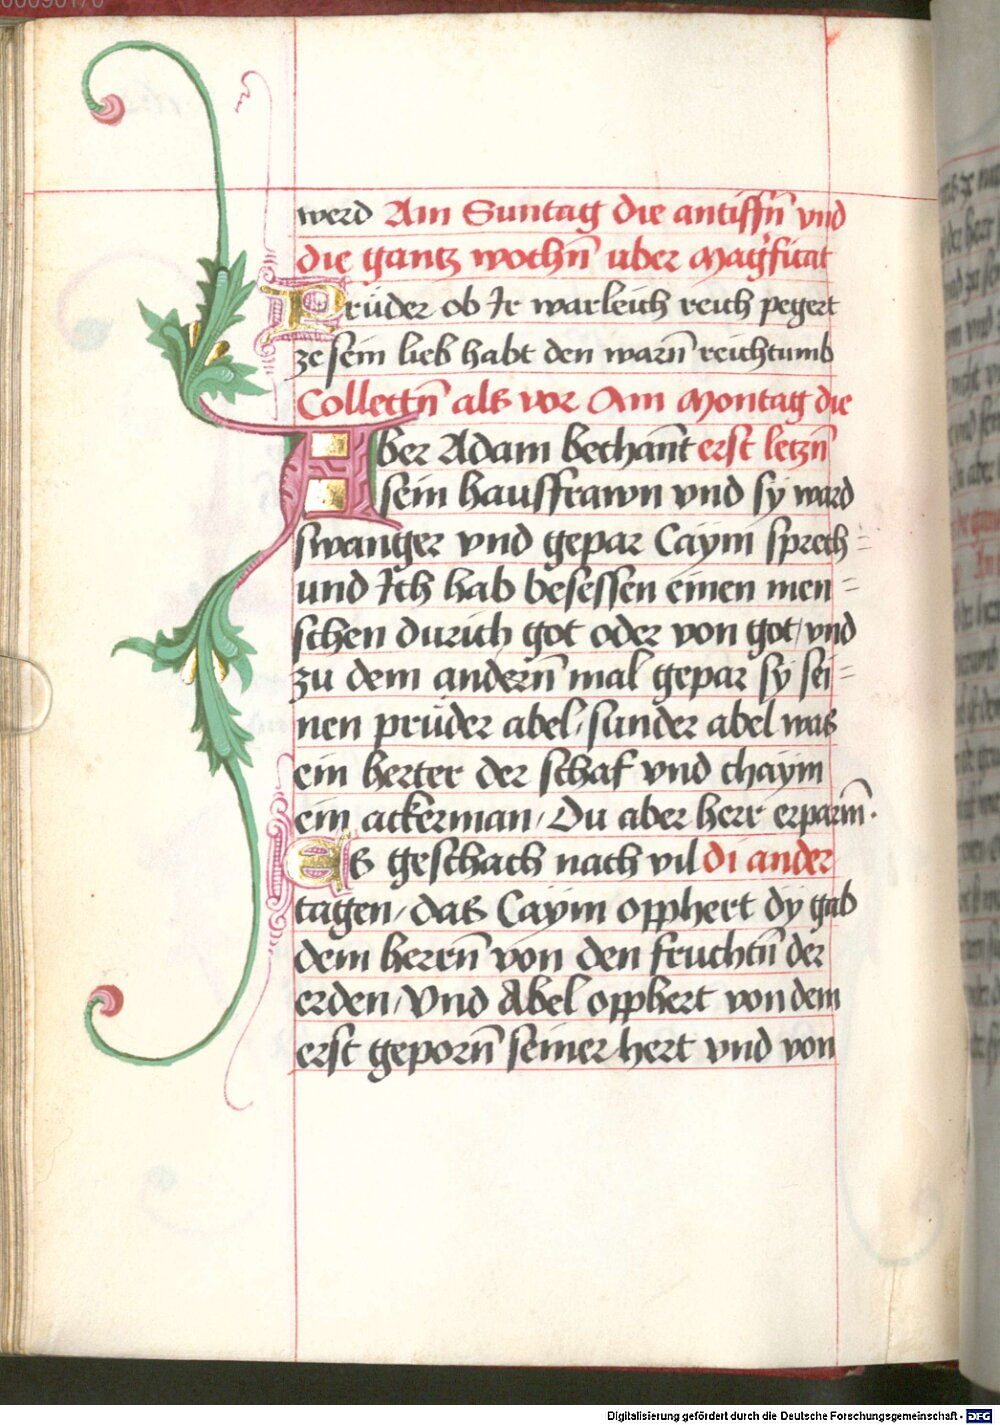 00090170
werd Am Suntag die antiffn̄ vnd
die gantz wochn̄ uber Magͤficat
Prüder ob Ir warleich reich pegert
ze sein lieb habt den warn̄ reichtumb
Collectn̄ als vor Am Montag die
Aber Adam bechan̄t erst letzn̄
sein hauffrawn vnd sy ward
swanger vnd gepar Caym sprech=
und Ich hab besessen einen men=
schen durich got oder von got/ vnd
zu dem andern̄ mal gepar sy sei=
nen prüder abel/ sunder abel was
ein herter der schaf vnd chaym
ein ackerman/ Du aber herr erparm̄.
Es geschach nach vil di ander
tagen/ das Caym opphert dy gab
dem herrn̄ von den fruchtn̄ der
erden/ Vnd Abel opphert von dem
erst geporn̄ seiner hert vnd von
Digitalisierung gefördert durch die Deutsche Forschungsgemeinschaft - DFG